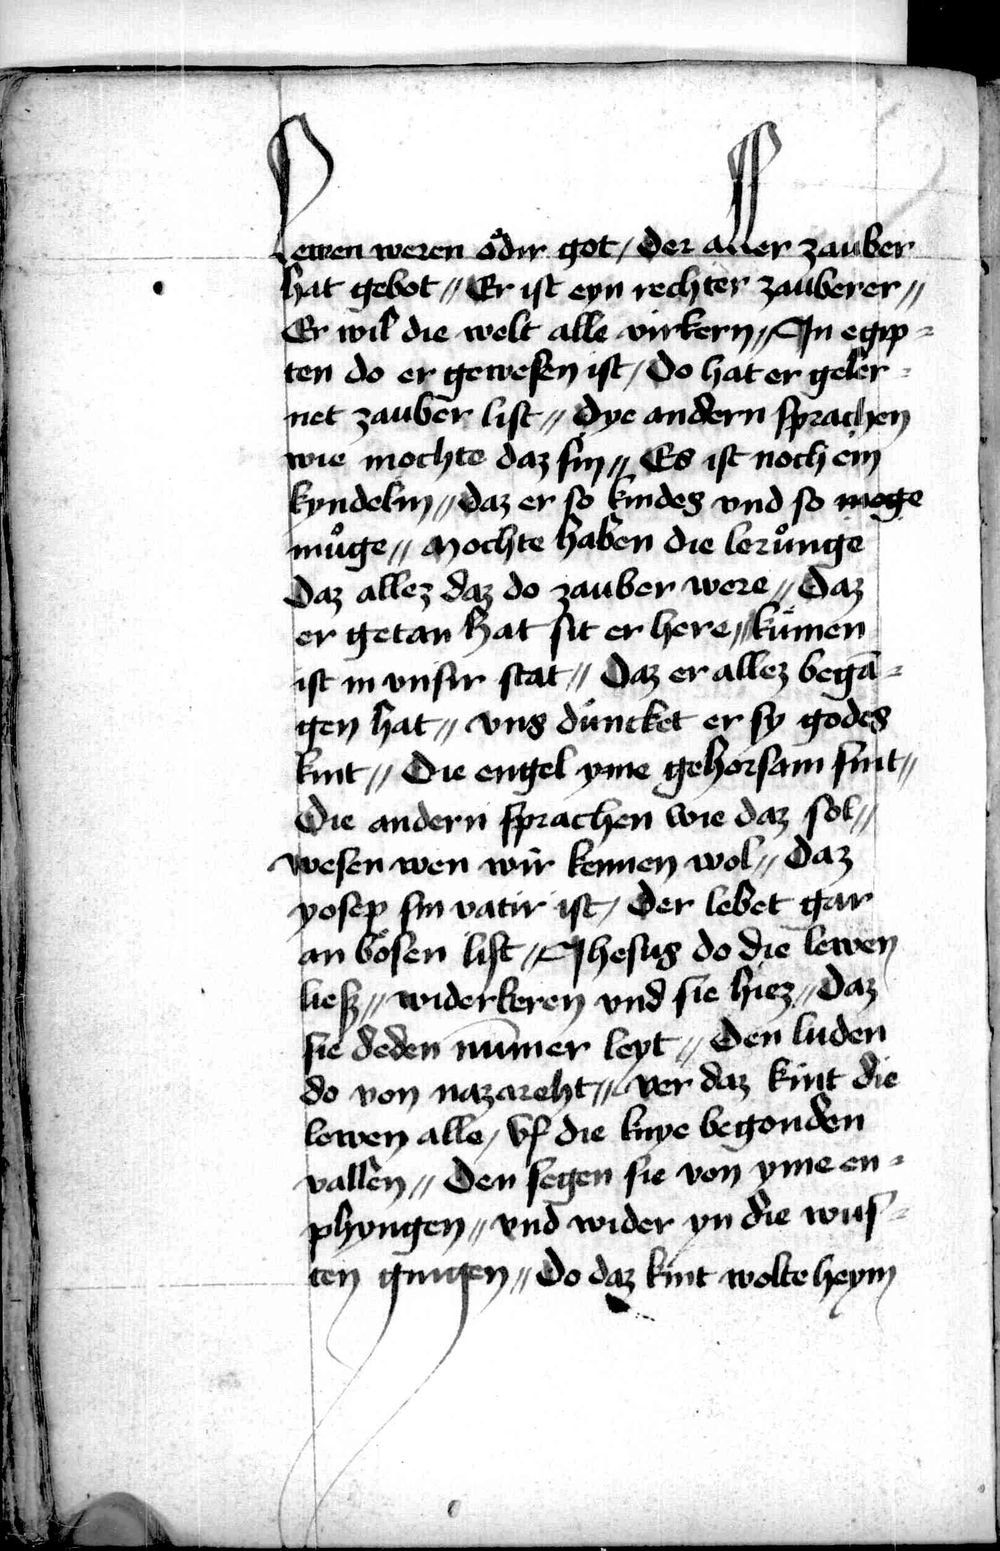 Lewen weren odir got / Der aller zauber
hat gebot // Er ist eyn rechter zauberer //
Er wil die welt alle virkern // In egip-
ten do er gewesen ist / Do hat er geler-
net zauber list // Dye andern sprachen
wie mochte daz sin // Es ist noch ein
kyndelin // Daz er so kindes vnd so moge
můge // Mochte haben die lerůnge
Daz allez daz do zauber were // Daz
er getan hat sit er here // kůmen
ist in vnsir stat // Daz er allez begā-
gen hat // vns důncket er sy godes
kint // Die engel yme gehorsam sint //
Die andern sprachen wie daz sol //
wesen wen wir kennen wol // Daz
yosep sin vatir ist / Der lebet gar
an bősen list / Jhesus do die lewen
ließ // widerkeren vnd sie hiez // Daz
sie deden nūmer leyt // Den luden
do von nazareht // ver daz kint die
lewen alle / Vf die knye begonden
vallen // Den segen sie von yme en-
phyngen // vnd wider yn die wus-
ten gingen // Do daz kint wolte heym